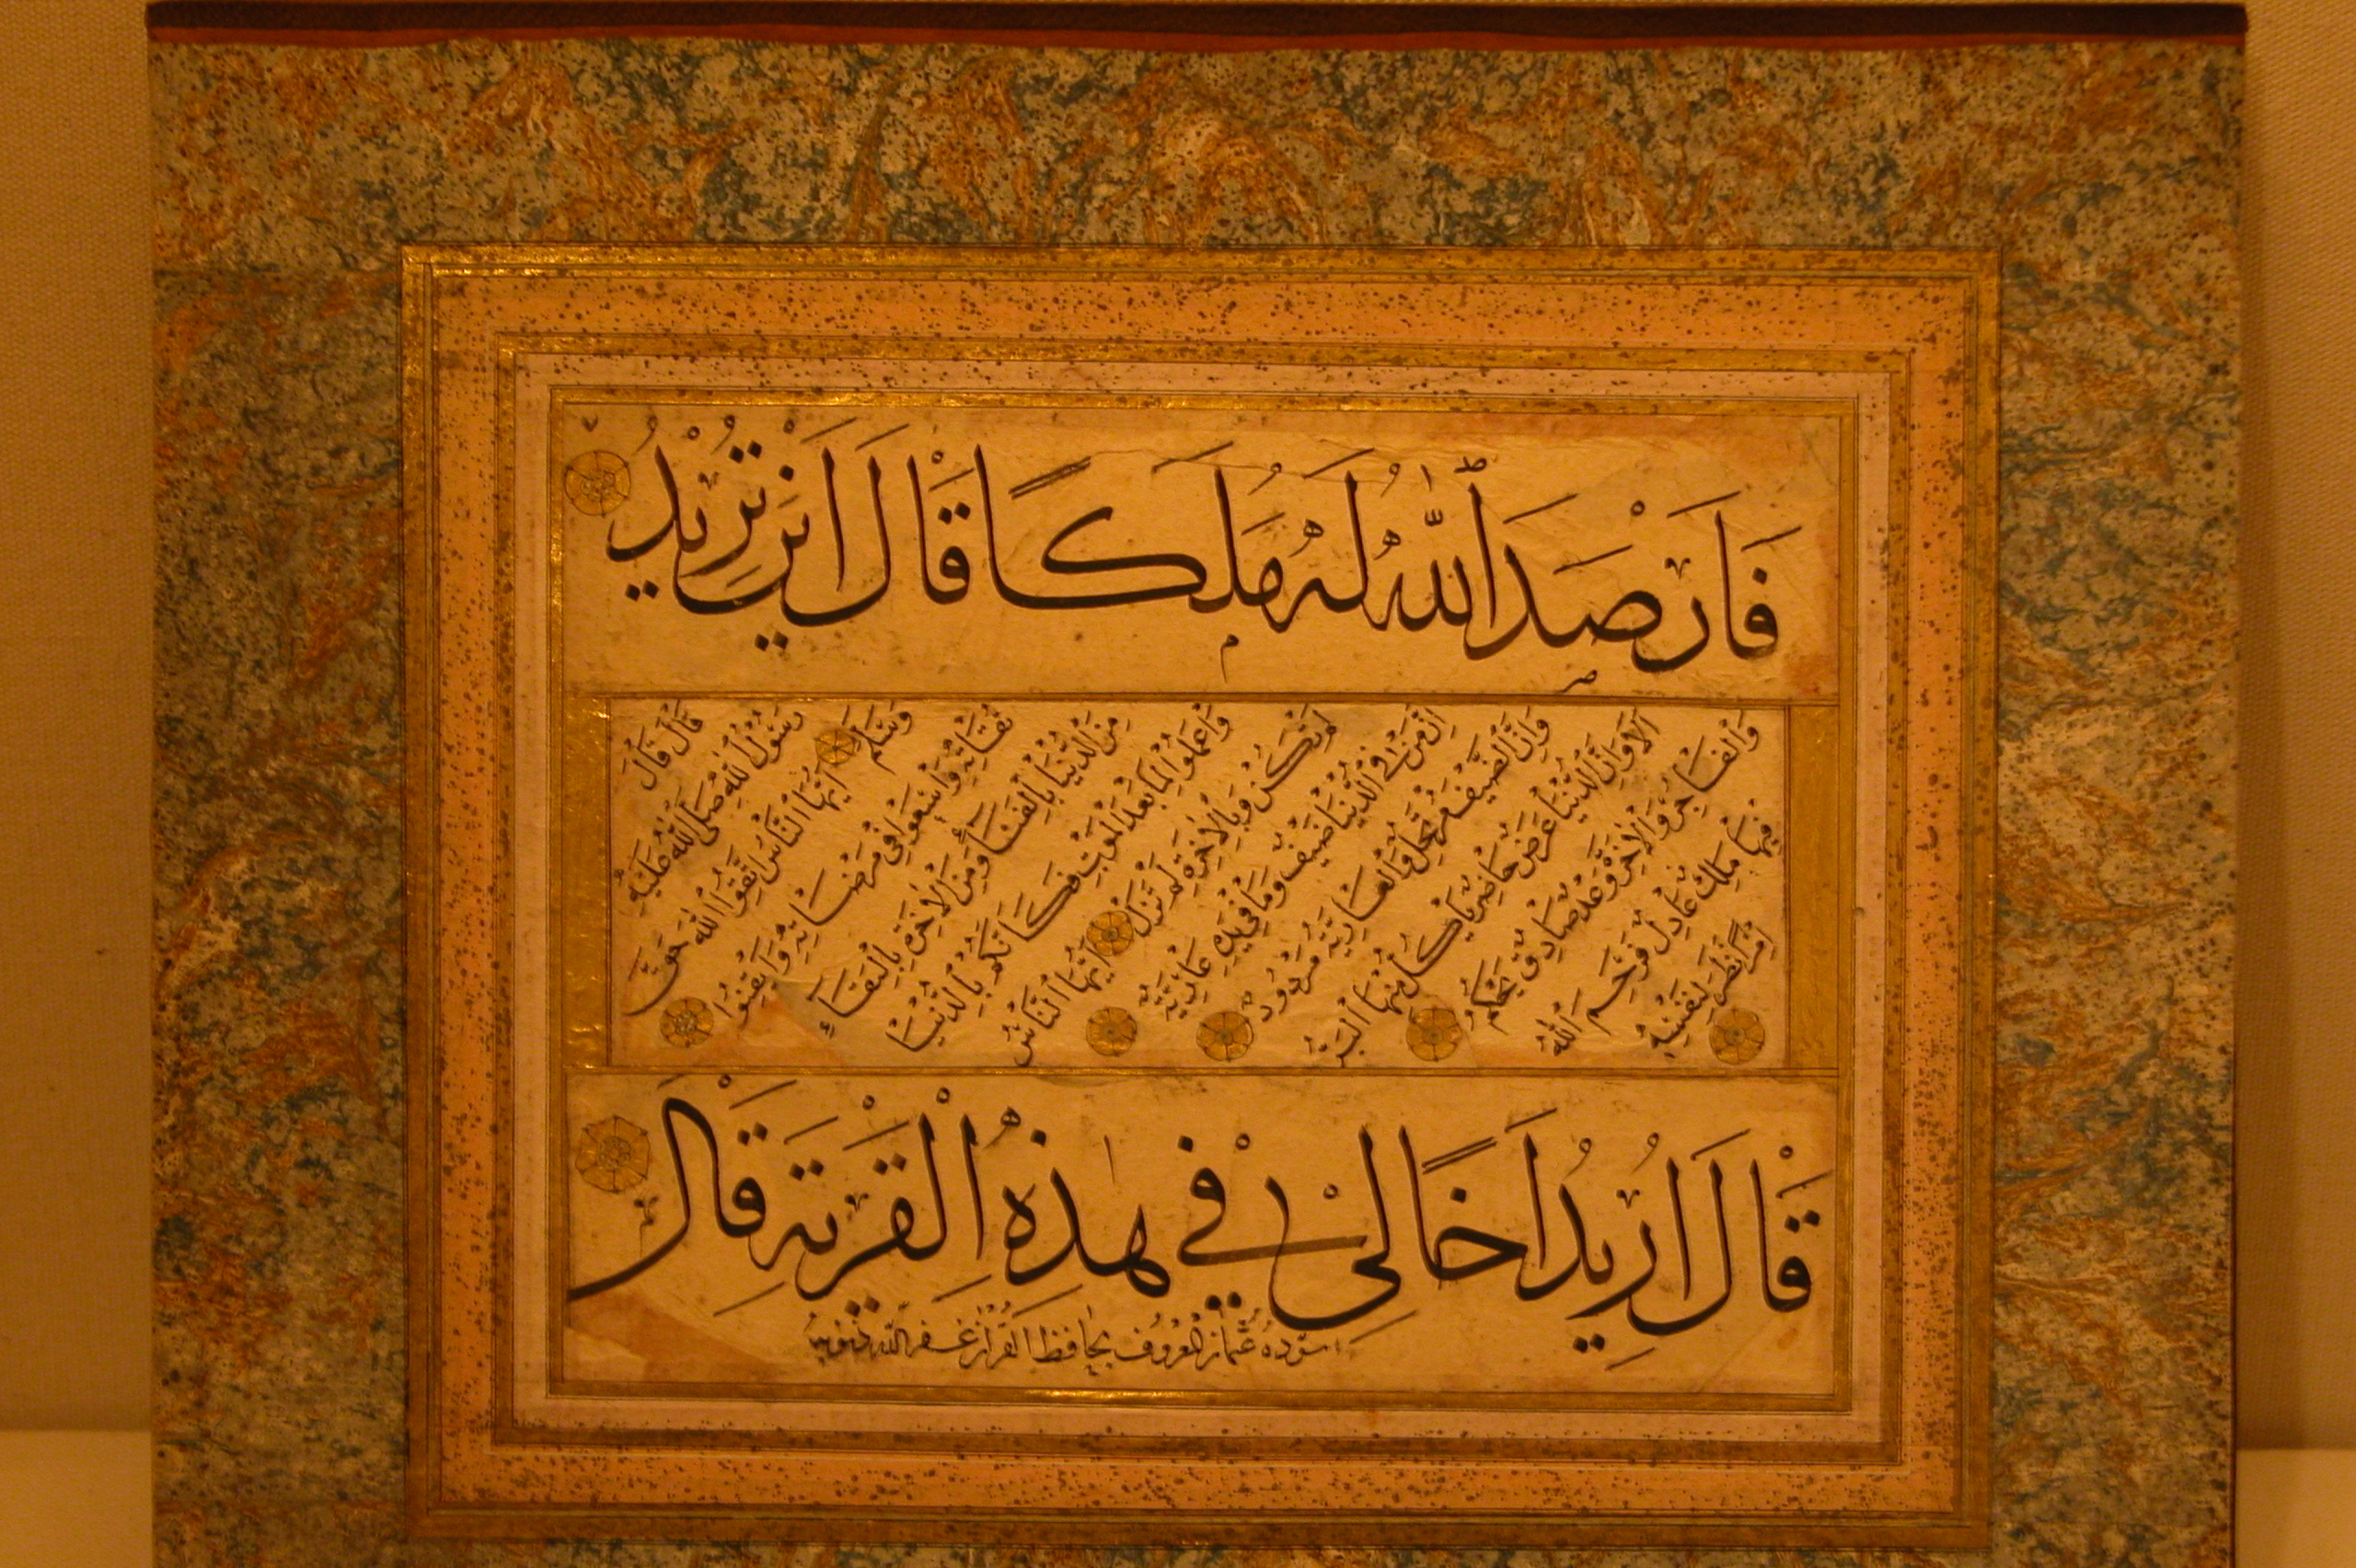 فَاَرْصَدَ اللّٰهُ لَهُ مَلَكًا قَالَ اَيْنَ تُرِيدُ
قَالَ قَالَ
رَسُولُ اللّٰهِ صَلَّى اللّٰهُ عَلَيْهِ
وَسَلَّمَ اَيُّهَا النَّاسُ اتَّقُوا اللّٰهَ حَقَّ
تُقَاتِهِ وَاسْعَوْا فِي مَرْضَاتِهِ وَاَيْقِنُوا
مِنَ الدُّنْيَا بِالْفَنَاءِ وَمِنَ الْاٰخِرَةِ بِالْبَقَاءِ
وَاعْمَلُوا لِمَا بَعْدَ الْمَوْتِ فَكَاَنَّكُمْ بِالدُّنْيَا
لَمْ تَكُنْ وَبِالْاٰخِرَةِ لَمْ تَزَلْ اَيُّهَا النَّاسُ
اِنَّ مَنْ فِي الدُّنْيَا ضَيْفٌ وَمَا فِي يَدِهِ عَارِيَةٌ
وَاِنَّ الضَّيْفَ مُرْتَحِلٌ وَالْعَارِيَةُ مَرْدُودَةٌ
اَلَا وَاِنَّ الدُّنْيَا عَرَضٌ حَاضِرٌ يَأْكُلُ مِنْهَا الْبَرُّ
وَالْفَاجِرُ وَالْاٰخِرَةُ وَعْدٌ صَادِقٌ يَحْكُمُ
فِيهَا مَلِكٌ عَادِلٌ فَرَحِمَ اللّٰهُ
امْرَأً نَظَرَ لِنَفْسِهِ
قَالَ اُرِيدُ اَخًا لِي فِي هٰذِهِ الْقَرْيَةِ قَالَ
سوده عثمان المعروف بحافظ القرآن غفر الله ذنوبه